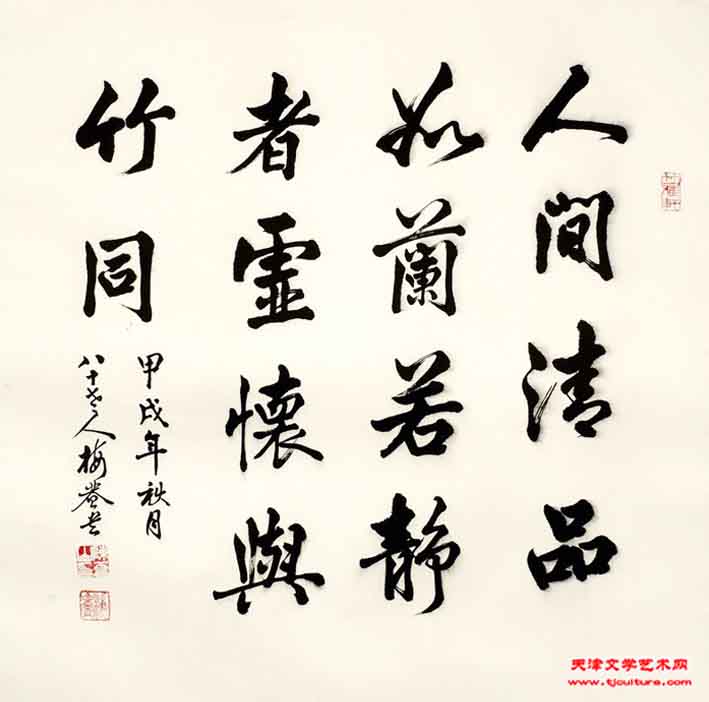 人間清品
如蘭若靜
者虛懷與
竹同
甲戌年秋月
八十老人梅
天津文学艺术网
www.tjculture.com